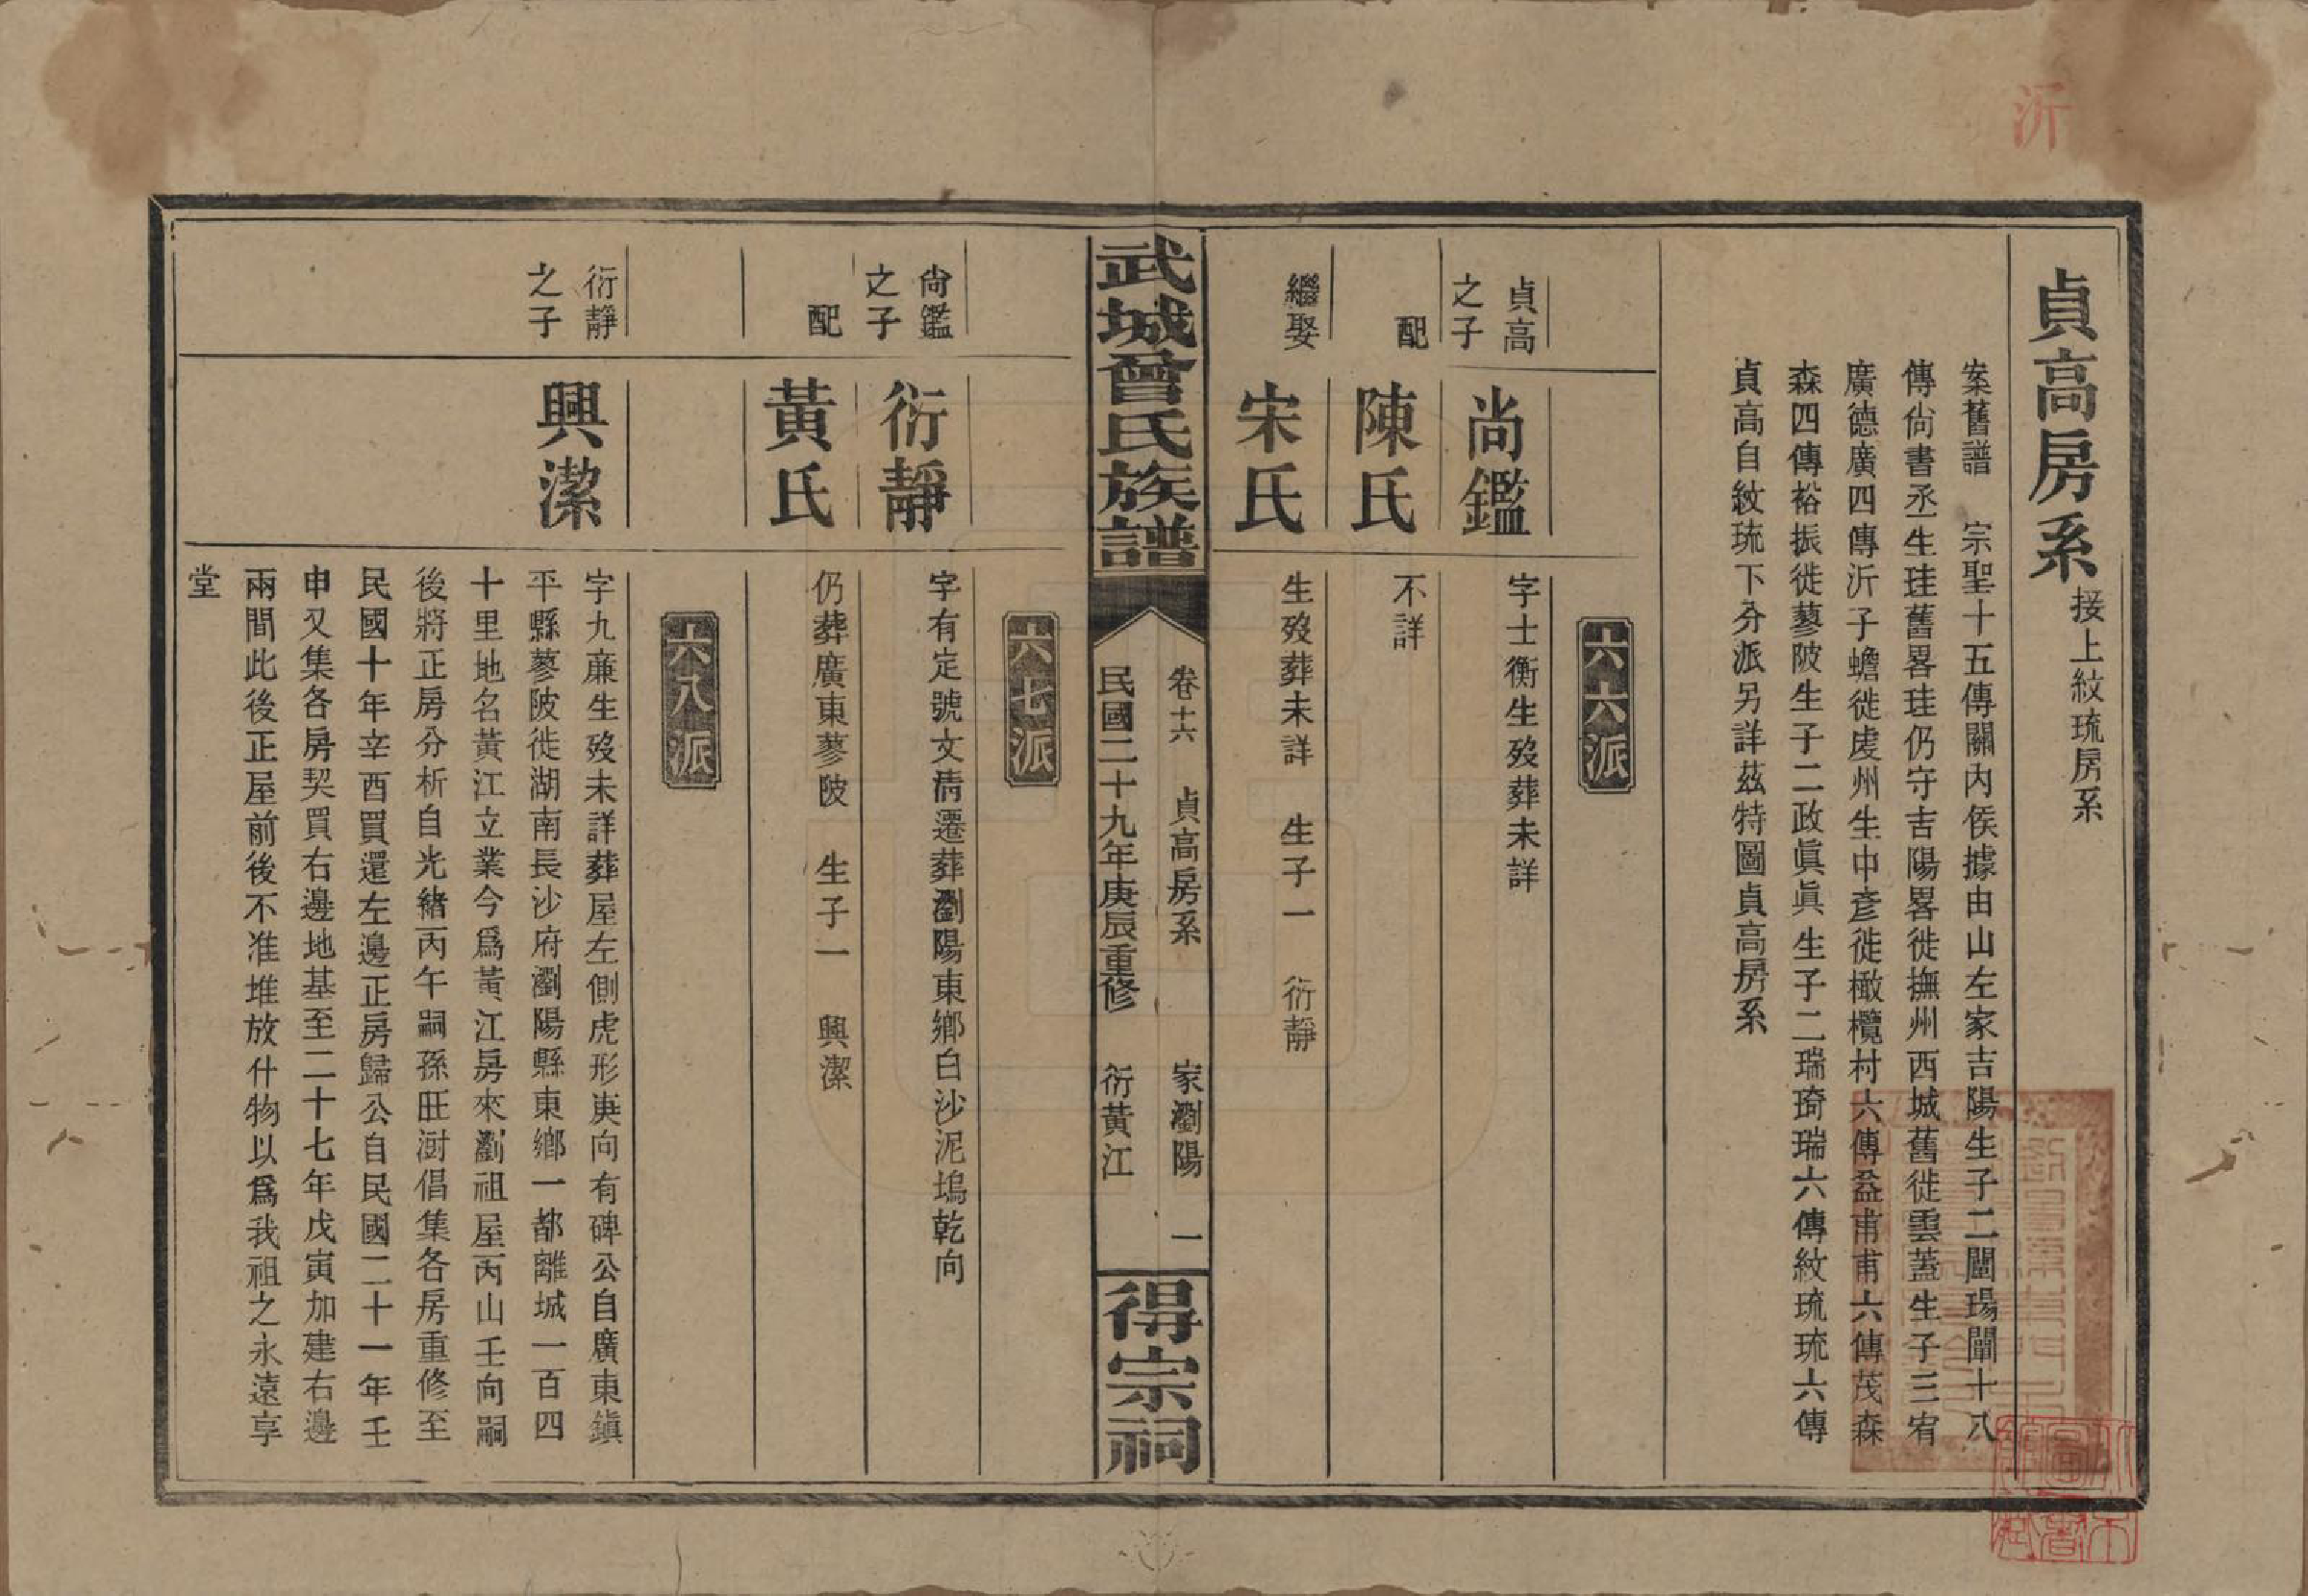 沂
貞高房系 接上紋琉房系
案舊譜 宗聖十五傳關內侯據由山左家吉陽生子二闉瑒闉十八
傳尙書丞生珪舊畧珪仍守吉陽畧徙撫州西城舊徙雲蓋生子三宥
廣德廣四傳沂子蟾徙虔州生中彥徙橄欖村六傳益甫甫六傳茂森
森四傳裕振徙蓼陂生子二政眞眞生子二瑞琦瑞六傳紋琉琉六傳
貞高自紋琉下分派另詳茲特圖貞高房系
六六派
貞高之子
尚鑑
字士衡生歿葬未詳
配
陳氏
不詳
繼娶
宋氏
生歿葬未詳 生子一 衍靜
武城曾氏族譜
卷十六 貞高房系 家瀏陽 一
民國二十九年庚辰重修 衍黃江
得宗祠
六七派
尙鑑之子
衍靜
字有定號文淸遷葬瀏陽東鄉白沙泥塢乾向
配
黃氏
仍葬廣東蓼陂 生子一 興潔
六八派
衍靜之子
興潔
字九亷生歿未詳葬屋左側虎形庚向有碑公自廣東鎭
平縣蓼陂徙湖南長沙府瀏陽縣東鄉一都離城一百四
十里地名黃江立業今爲黃江房來瀏祖屋丙山壬向嗣
後將正房分析自光緒丙午嗣孫旺澍倡集各房重修至
民國十年辛酉買還左邊正房歸公自民國二十一年壬
申又集各房契買右邊地基至二十七年戊寅加建右邊
兩間此後正屋前後不准堆放什物以爲我祖之永遠享
堂